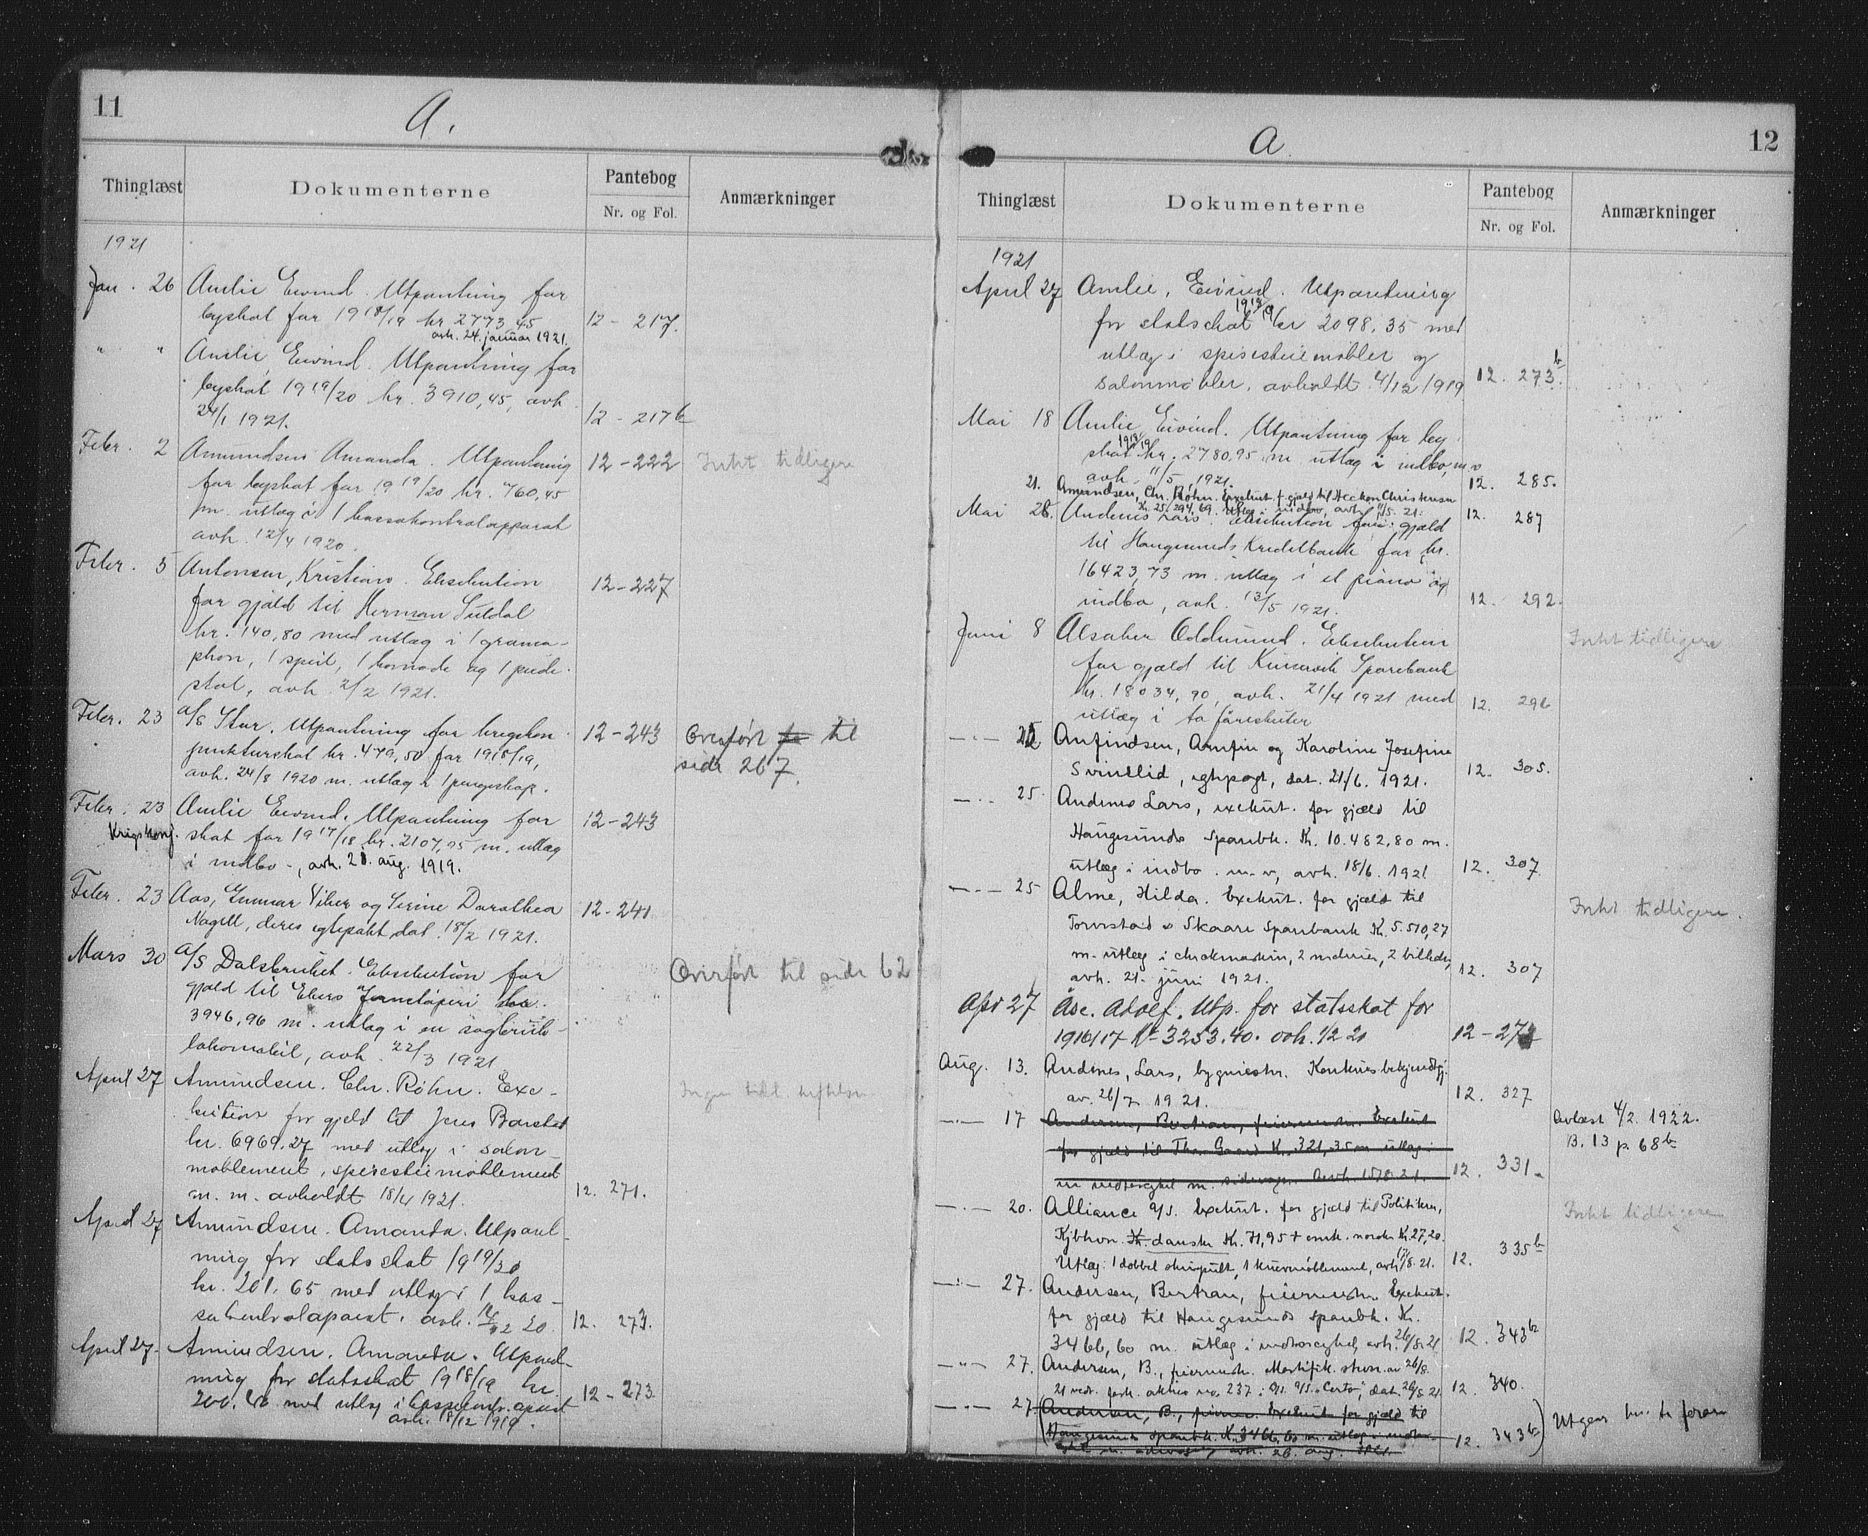 11
A.
Thinglæst
Dokumenterne
Pantebog
Nr. og Fol.
Anmærkninger
1921
Jan. 26 Amlie Eivind. Utpantning for
byskat for 1918/19 kr 2773,45 12 - 217.
avh. 24. januar 1921.
" " Amlie, Eivind. Utpantning for
byskat 1919/20 kr. 3910,45, avh.
24/1 1921. 12 - 217 b
Febr. 2 Amundsen Amanda. Utpantning 12 - 222 Intet tidligere
for byskat for 1919/20 kr. 760,45
m. utlæg i 1 kassakontrolapparat
avh. 12/4 1920.
Febr. 5 Antonsen, Kristian. Eksekution 12 - 227
for gjæld til Herman Suldal
kr. 140,80 med utlæg i 1 gramo-
phon, 1 speil, 1 komode og 1 piede-
stal, avh. 2/2 1921.
Febr. 23 A/S Stur. Utpantning for krigskon- 12 - 243 Overført til
junkturskat kr. 479,50 for 1918/19, side 267.
avh. 24/8 1920 m. utlæg i 1 pengeskap.
Febr. 23 Amlie Eivind. Utpantning for 12 - 243
Krigskonj. skat for 1917/18 kr. 2107,95 m. utlæg
i indbo -, avh. 21. aug. 1919.
Febr. 23 Aas, Gunnar Viker og Serine Dorothea 12 - 241
Nagell, deres egtepakt dat. 18/2 1921.
Mars 30 A/S Dalsbruket. Eksekution for Overført til side 62
gjæld til Ekers Jernstøperi kr.
3946,96 m. utlæg i en sagbruk-
lokomobil, avh. 22/3 1921
April 27 Amundsen. Chr. Røhn. Exe- Ingen tidl. heftelser
kution for gjeld til Jens Barstad
kr. 6969.27 med utlæg i salon-
møblement, spisestuemøblement
m. m. avholdt 18/4 1921. 12. 271.
April 27 Amundsen. Amanda. Utpant-
ning for statsskat 1919/20
kr. 201.65 med utlæg i 1 kas-
sakontrolaparat. avh. 20. 12. 273.
April 27. Amundsen. Amanda. Utpant-
ning for statsskat 1918/19 kr. 12 - 273
200. med utlæg i kassekontr. aparat
avh. 18/12 1919.
12
A.
Thinglæst
Dokumenterne
Pantebog
Nr. og Fol.
Anmærkninger
1921
April 27 Amlie, Eivind. Utpantning
for statsskat 1918/19 kr 2098.35 med
utlæg i spisestuemøbler og
salonmøbler. avholdt 4/12 1919 12. 273 b.
Mai 18 Amlie Eivind. Utpantning for by-
skat 1918/19 kr. 2780,95 m. utlæg i indbo, m v
avh. 11/5 1921. 12. 285.
21. Amundsen, Chr. Røhn. Exekut. f. gjæld til Haakon Christensen
Kr. 25.294,69. Utlæg i indbo, avh. 11/5. 21. 12. 287
Mai 28. Andenes Lars. Eksekution for gjæld
til Haugesunds Kreditbank for kr.
16423,73 m. utlæg i et piano og
indbo, avh. 13/5 1921. 12. 292.
Juni 8 Alsaker Oddmund. Eksekution Intet tidligere
for gjæld til Kinservik Sparebank
kr. 18034,90, avh. 21/4 1921 med
utlæg i to færeskuter 12. 296
— " — 22 Anfindsen, Arnfin og Karoline Josefine
Svindlid, egtepagt, dat. 21/6. 1921. 12. 305.
— " — 25. Andenes Lars, exekut. for gjæld til
Haugesunds Sparebk. Kr. 10.482,80 m.
utlæg i indbo. m. v, avh. 18/6. 1921 12. 307.
— " — 25 Alme, Hilda. Exekut. for gjæld til Intet tidligere.
Torvestad & Skaare Sparebank Kr. 5.510,27
m. utlæg i chokmaskin, 2 maskiner, 2 billeder,
avh. 21. juni 1921. 12. 307
Apr 27 Åse. Adolf. Utp. for statsskat for
1916/17 Kr 3253.40. avh. 1/2 21 12 - 27
Aug. 13. Andenes, Lars, bygmestr. Konkursbekjendtgj.
av. 26/7 1921. 12. 327
— " — 17 Andersen, Bertran, feiermester. Exekut Avlæst 4/2. 1922.
for gjæld til Thv. Gaard Kr. 321,35 m. utlæg i B. 13 p. 68 b
en motorcykel m. sidevogn. Avh. 15/8. 21. 12. 331.
— " — 20. Alliance A/S. Exekut. for gjæld til Politiken, Intet tidligere
Kjbhvn. danske Kr. 71,95 + omk. norske Kr. 27,20.
Utlæg: 1 dobbel skrivpult, 1 skuemøblement, avh. 17/8. 21. 12. 335 b
— " — 27. Andersen, Bertran, feiermester. Exekut.
for gjæld til Haugesunds Sparebk. Kr.
3466,60 m. utlæg i motorcykel, avh. 26/8. 21 12. 343 b
— " — 27. Andersen, B., feiermestr. Mortifik. stevn. av 26/8.
21 vedr. fork. aktie no. 237 i A/S "Certo", dat. 26/8. 21 12. 340.
— " — 27. (Andersen, B., feierm. Exekut for gjæld til Utgaar
Haugesunds Sparebk. Kr. 3466,60 m. utlæg i motor-
cykel m. sidevogn avh. 26. aug. 1921. 12. 343 b)